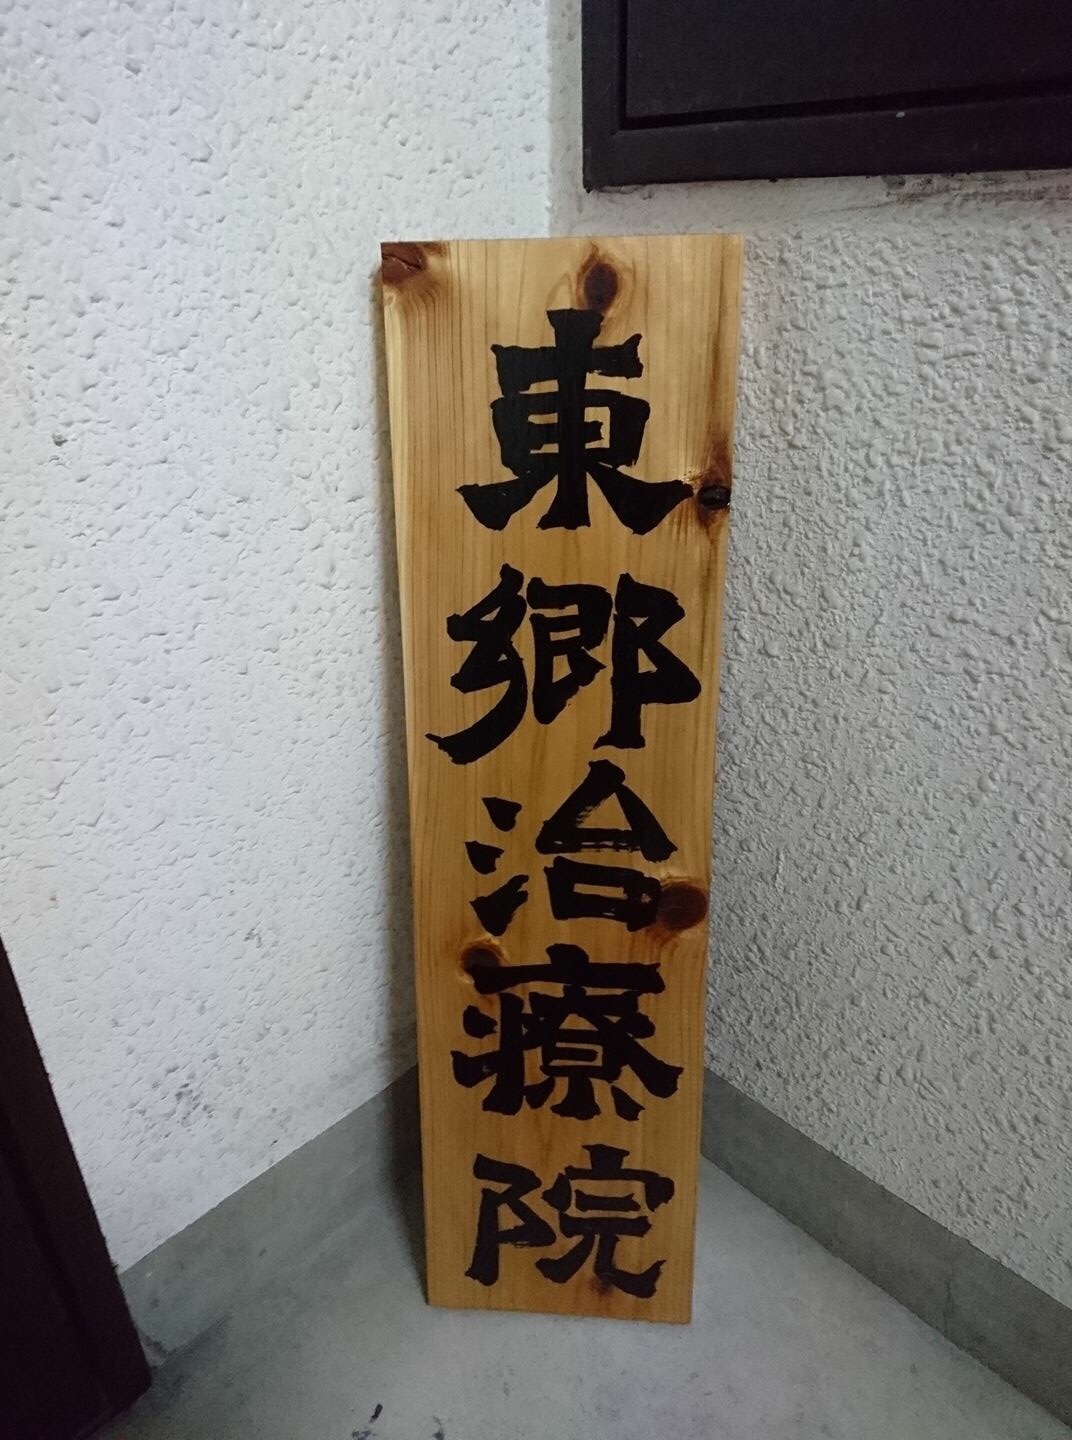 東郷治療院